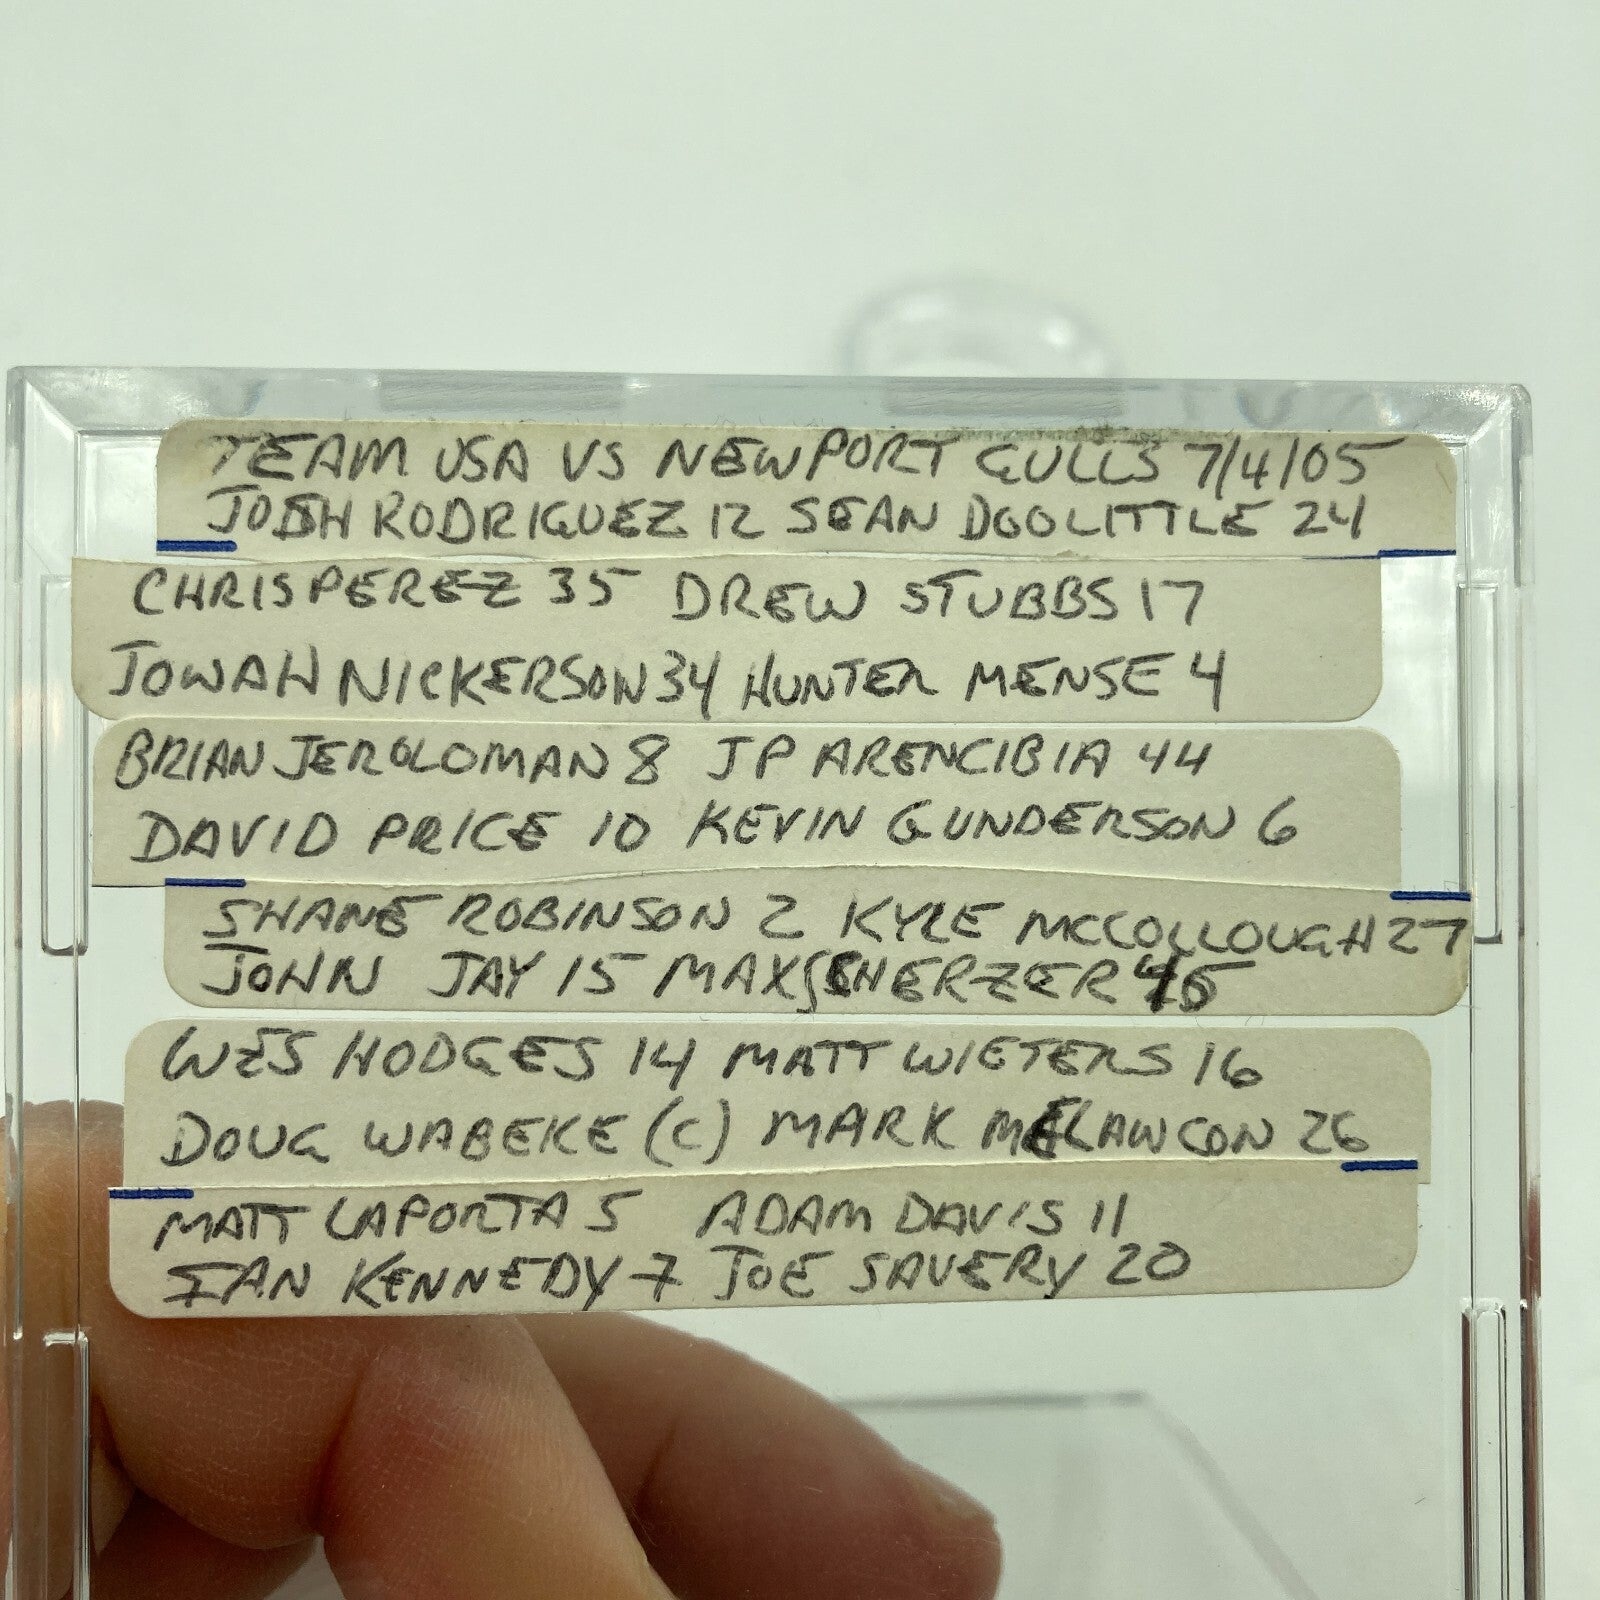 TEAM USA VS NEWPORT GULLS 7/4/05
JOSH RODRIGUEZ 12 SEAN DOOLITTLE 24
CHRIS PEREZ 35 DREW STUBBS 17
JOWAH NICKERSON 34 HUNTER MENSE 4
BRIAN JEROLOMAN 8 JP ARENCIBIA 44
DAVID PRICE 10 KEVIN GUNDERSON 6
SHANE ROBINSON 2 KYLE MCCOLLOUGH 27
JOHN JAY 15 MAX SCHERZER 45
WES HODGES 14 MATT WIETERS 16
DOUG WABEKE (C) MARK MELAWCON 26
MATT LAPORTA 5 ADAM DAVIS 11
IAN KENNEDY 7 JOE SAVERY 20